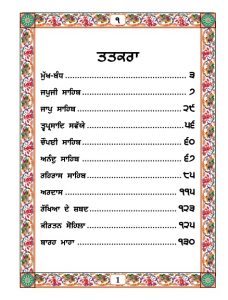 ੧
ਤਤਕਰਾ
ਮੁੱਖ-ਬੰਧ ................ ੩
ਜਪੁਜੀ ਸਾਹਿਬ ................ ੭
ਜਾਪੁ ਸਾਹਿਬ ................ ੨੯
ਤ੍ਵਪ੍ਰਸਾਦਿ ਸਵੱਯੇ ................ ੫੬
ਚੌਪਈ ਸਾਹਿਬ ................ ੬੦
ਅਨੰਦੁ ਸਾਹਿਬ ................ ੬੭
ਰਹਿਰਾਸ ਸਾਹਿਬ ................ ੮੫
ਅਰਦਾਸ ................ ੧੧੫
ਰੱਖਿਆ ਦੇ ਸ਼ਬਦ ................ ੧੨੩
ਕੀਰਤਨ ਸੋਹਿਲਾ ................ ੧੨੫
ਬਾਰਹ ਮਾਹਾ ................ ੧੩੦
1